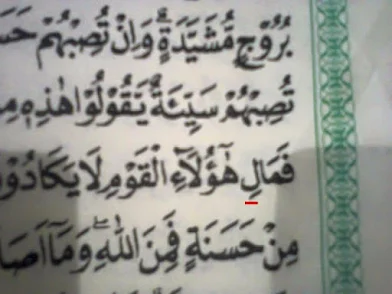 بُرُوْجٍ مُّشَيَّدَةٍ ؕ وَاِنْ تُصِبْهُمْ
تُصِبْهُمْ سَيِّئَةٌ يَّقُوْلُوْا هٰذِهٖ
فَمَالِ هٰٓؤُلَآءِ الْقَوْمِ لَا يَكَادُوْ
مِنْ حَسَنَةٍ فَمِنَ اللّٰهِ ۖ وَمَاۤ اَصَا